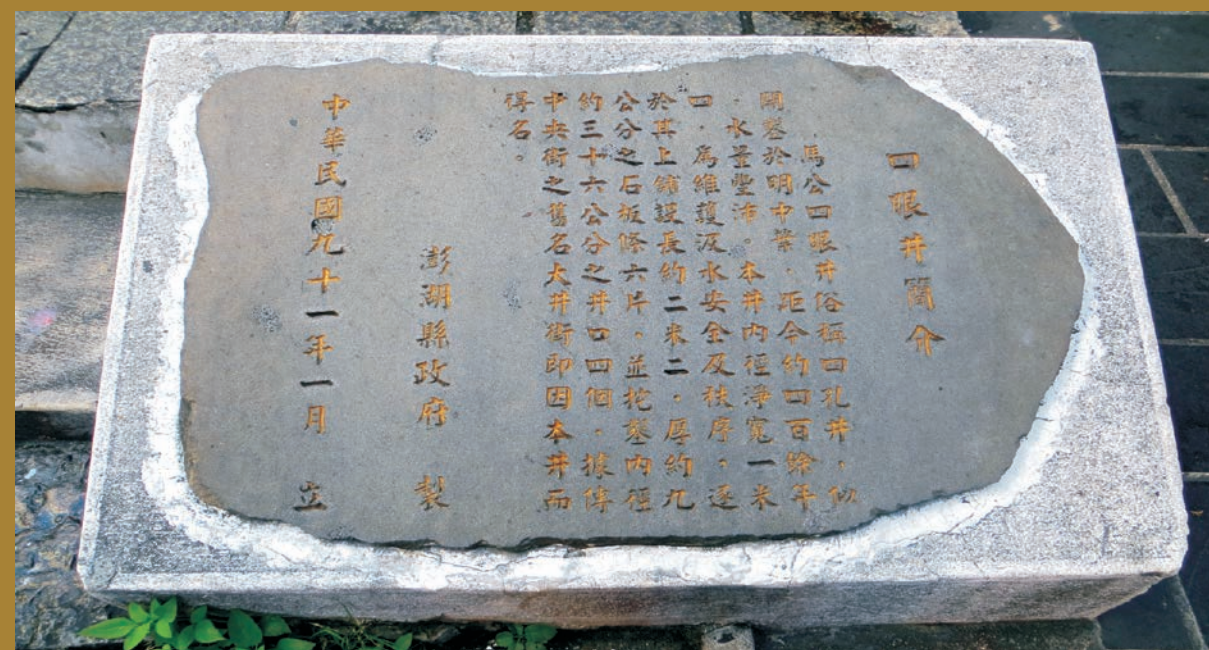 四眼井簡介
馬公四眼井俗稱四孔井，似
開鑿於明中葉，距今約四百餘年
，水量豐沛。本井內徑淨寬一米
四，為維護汲水安全及秩序，遂
於其上鋪設長約二米二，厚約九
公分之石板條六片，並挖鑿內徑
約三十六公分之井口四個，據傳
中央街之舊名大井街即因本井而
得名。
彭湖縣政府 製
中華民國九十一年一月 立